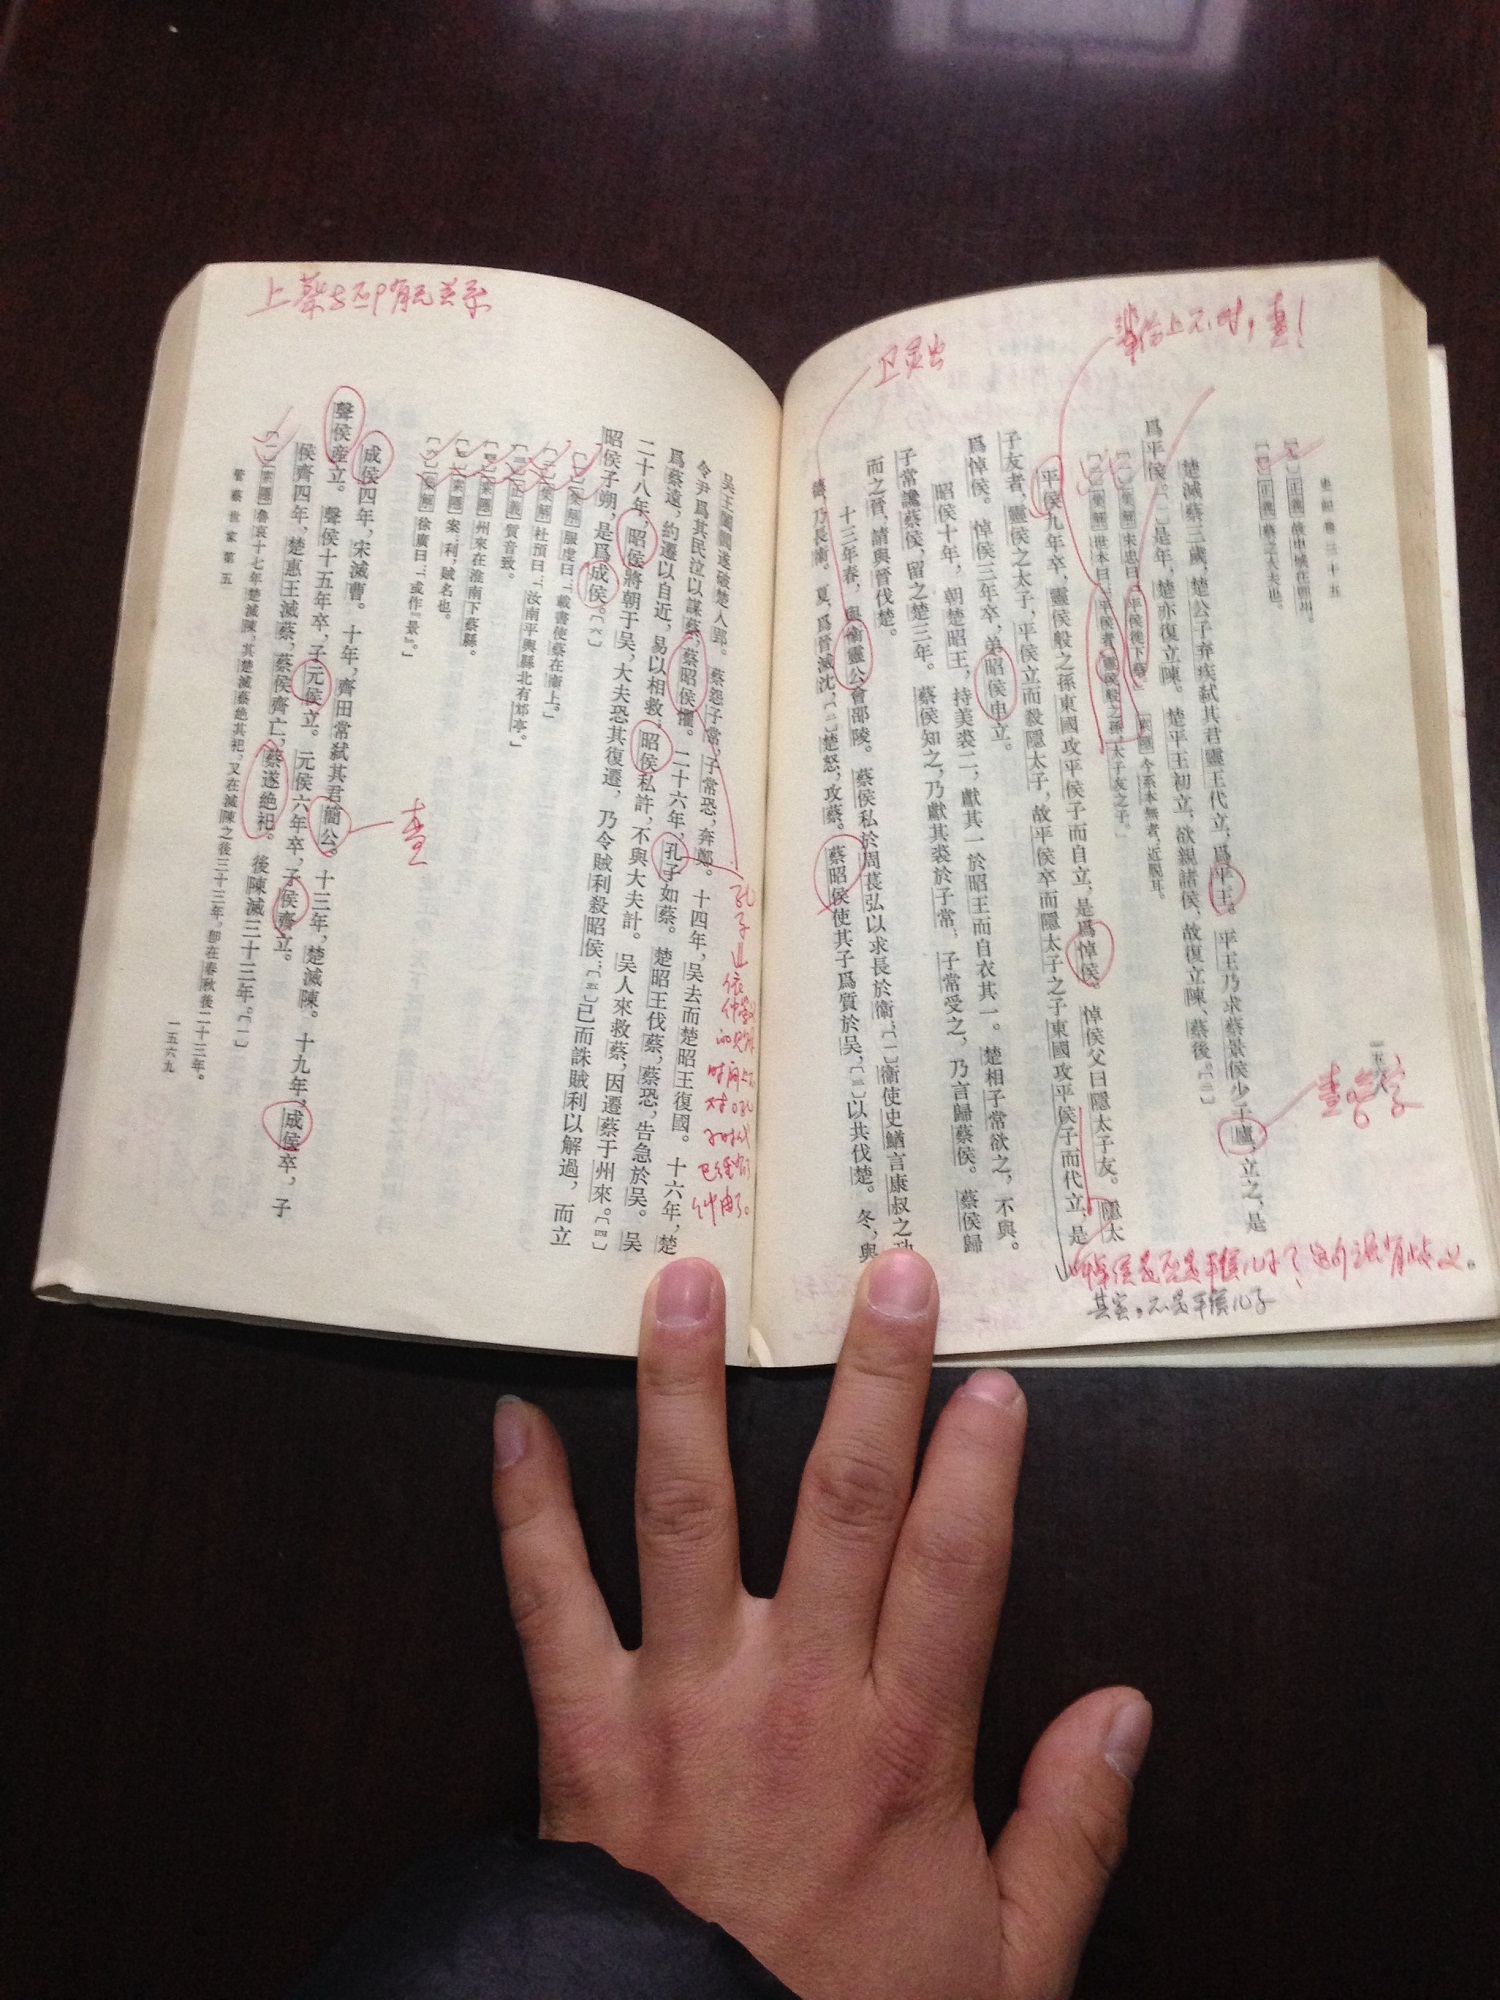 史記卷三十五
一五六八
〔七〕正義故申城在鄧州。
〔八〕正義蔡之大夫也。
楚滅蔡三歲，楚公子弃疾弒其君靈王代立，爲平王。平王乃求蔡景侯少子廬，立之，是
爲平侯。〔一〕是年，楚亦復立陳。楚平王初立，欲親諸侯，故復立陳、蔡後。〔二〕
〔一〕集解宋忠曰：「平侯徙下蔡。」索隱今系本無者，近脫耳。
〔二〕集解世本曰：「平侯者，靈侯般之孫，太子友之子。」
平侯九年卒，靈侯般之孫東國攻平侯子而自立，是爲悼侯。悼侯父曰隱太子友。隱太
子友者，靈侯之太子，平侯立而殺隱太子，故平侯卒而隱太子之子東國攻平侯子而代立，是
爲悼侯。悼侯三年卒，弟昭侯申立。
昭侯十年，朝楚昭王，持美裘二，獻其一於昭王而自衣其一。楚相子常欲之，不與。
子常讒蔡侯，留之楚三年。蔡侯知之，乃獻其裘於子常；子常受之，乃言歸蔡侯。蔡侯歸
而之晉，請與晉伐楚。
十三年春，與衞靈公會邵陵。蔡侯私於周萇弘以求長於衞；〔一〕衞使史鰌言康叔之功
德，乃長衞。夏，爲晉滅沈，〔二〕楚怒，攻蔡。蔡昭侯使其子爲質於吳，〔三〕以共伐楚。冬，與
卫灵公
查
其实，不是平侯儿子
吳王闔閭遂破楚入郢。蔡怨子常，子常恐，奔鄭。十四年，吳去而楚昭王復國。十六年，楚
令尹爲其民泣以謀蔡，蔡昭侯懼。二十六年，孔子如蔡。楚昭王伐蔡，蔡恐，告急於吳。吳
爲蔡遠，約遷以自近，易以相救；昭侯私許，不與大夫計。吳人來救蔡，因遷蔡于州來。〔四〕
二十八年，昭侯將朝于吳，大夫恐其復遷，乃令賊利殺昭侯；〔五〕已而誅賊利以解過，而立
昭侯子朔，是爲成侯。〔六〕
〔一〕集解服虔曰：「載書使蔡在衞上。」
〔二〕集解杜預曰：「汝南平輿縣北有邥亭。」
〔三〕正義質音致。
〔四〕索隱州來在淮南下蔡縣。
〔五〕索隱案：利，賊名也。
〔六〕集解徐廣曰：「或作『景』。」
成侯四年，宋滅曹。十年，齊田常弒其君簡公。十三年，楚滅陳。十九年，成侯卒，子
聲侯產立。聲侯十五年卒，子元侯立。元侯六年卒，子侯齊立。
侯齊四年，楚惠王滅蔡，蔡侯齊亡，蔡遂絕祀。後陳滅三十三年。〔一〕
〔一〕索隱魯哀十七年楚滅陳，其楚滅蔡絕其祀，又在滅陳之後三十三年，即在春秋後二十三年。
管蔡世家第五
一五六九
查